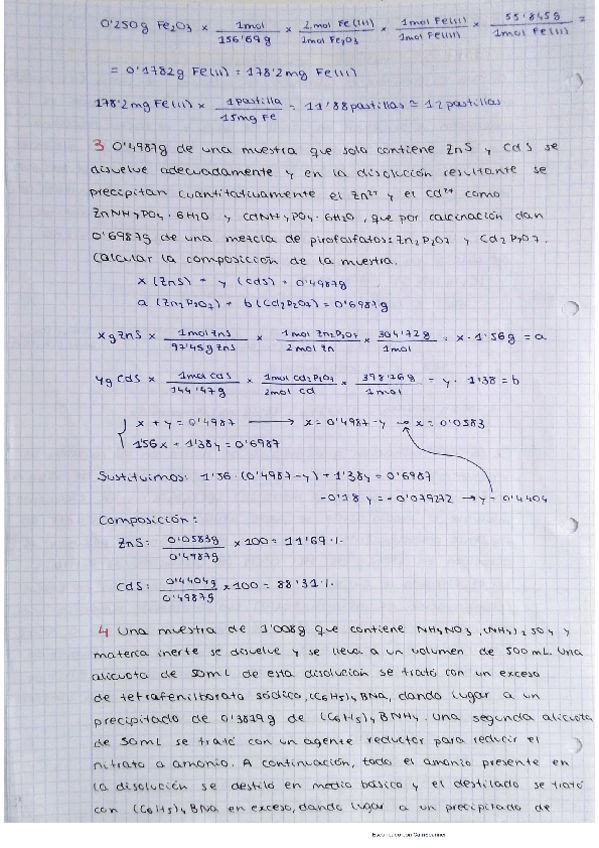 0'250g Fe2O3 × 1mol / 156'69g × 2 mol Fe(III) / 1mol Fe2O3 × 1mol Fe(II) / 1mol Fe(III) × 55'845g / 1mol Fe(II) =
= 0'1782g Fe(II) = 178'2mg Fe(II)
178'2mg Fe(II) × 1 pastilla / 15mg Fe = 11'88 pastillas ≈ 12 pastillas
3 0'4987g de una muestra que solo contiene ZnS y CdS se
disuelve adecuadamente y en la disolución resultante se
precipitan cuantitativamente el Zn2+ y el Cd2+ como
ZnNH4PO4 · 6H2O y CdNH4PO4 · 6H2O, que por calcinación dan
0'6987g de una mezcla de pirofosfatos: Zn2P2O7 y Cd2P2O7.
Calcular la composición de la muestra.
x (ZnS) + y (CdS) = 0'4987g
a (Zn2P2O7) + b (Cd2P2O7) = 0'6987g
x g ZnS × 1mol ZnS / 97'45g ZnS × 1mol Zn2P2O7 / 2mol Zn × 304'72g / 1mol = x · 1'56g = a
y g CdS × 1mol CdS / 144'47g × 1mol Cd2P2O7 / 2mol Cd × 398'76g / 1mol = y · 1'38 = b
{ x + y = 0'4987 → x = 0'4987 - y → x = 0'0583
1'56x + 1'38y = 0'6987
Sustituimos: 1'56 · (0'4987 - y) + 1'38y = 0'6987
-0'18 y = -0'079272 → y = 0'4404
Composición:
ZnS: 0'0583g / 0'4987g × 100 = 11'69 %
CdS: 0'4404g / 0'4987g × 100 = 88'31 %
4 Una muestra de 1'008g que contiene NH4NO3, (NH4)2SO4 y
materia inerte se disuelve y se lleva a un volumen de 500mL. Una
alícuota de 50mL de esta disolución se trató con un exceso
de tetrafenilborato sódico, (C6H5)4BNa, dando lugar a un
precipitado de 0'3819g de (C6H5)4BNH4. Una segunda alícuota
de 50mL se trató con un agente reductor para reducir el
nitrato a amonio. A continuación, todo el amonio presente en
la disolución se destiló en medio básico y el destilado se trató
con (C6H5)4BNa en exceso, dando lugar a un precipitado de